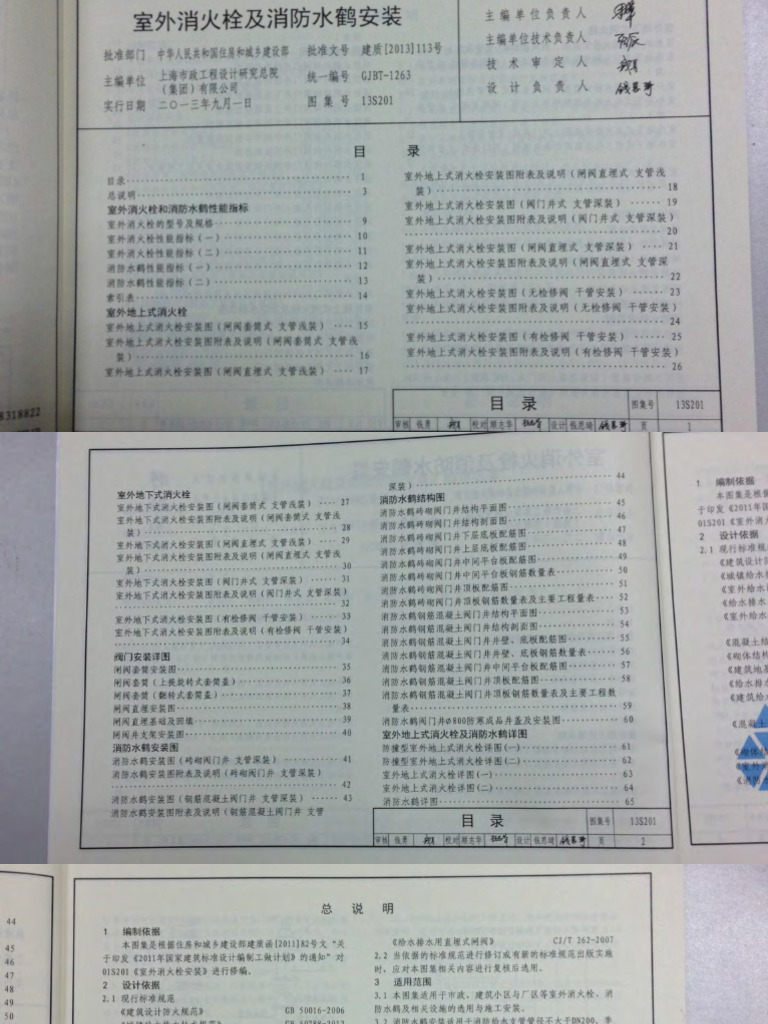 室外消火栓及消防水鹤安装
批准部门 中华人民共和国住房和城乡建设部 批准文号 建质[2013]113号
主编单位 上海市政工程设计研究总院（集团）有限公司 统一编号 GJBT-1263
实行日期 二〇一三年九月一日 图集号 13S201
主编单位负责人
主编单位技术负责人
技术审定人
设计负责人
目 录
目录 1
总说明 3
室外消火栓和消防水鹤性能指标
室外消火栓的型号及规格 9
室外消火栓性能指标(一) 10
室外消火栓性能指标(二) 11
消防水鹤性能指标(一) 12
消防水鹤性能指标(二) 13
索引表 14
室外地上式消火栓
室外地上式消火栓安装图（闸阀套筒式 支管浅装） 15
室外地上式消火栓安装图附表及说明（闸阀套筒式 支管浅
装） 16
室外地上式消火栓安装图（闸阀直埋式 支管浅装） 17
室外地上式消火栓安装图附表及说明（闸阀直埋式 支管浅
装） 18
室外地上式消火栓安装图（阀门井式 支管深装） 19
室外地上式消火栓安装图附表及说明（阀门井式 支管深装）
20
室外地上式消火栓安装图（闸阀直埋式 支管深装） 21
室外地上式消火栓安装图附表及说明（闸阀直埋式 支管深
装） 22
室外地上式消火栓安装图（无检修阀 干管安装） 23
室外地上式消火栓安装图附表及说明（无检修阀 干管安装）
24
室外地上式消火栓安装图（有检修阀 干管安装） 25
室外地上式消火栓安装图附表及说明（有检修阀 干管安装）
26
8318822
目 录 图集号 13S201
审核 钱勇 校对 顾志华 设计 钱思琦 页 1
室外地下式消火栓
室外地下式消火栓安装图（闸阀套筒式 支管浅装） 27
室外地下式消火栓安装图附表及说明（闸阀套筒式 支管浅
装） 28
室外地下式消火栓安装图（闸阀直埋式 支管浅装） 29
室外地下式消火栓安装图附表及说明（闸阀直埋式 支管浅
装） 30
室外地下式消火栓安装图（阀门井式 支管深装） 31
室外地下式消火栓安装图附表及说明（阀门井式 支管深装）
32
室外地下式消火栓安装图（有检修阀 干管安装） 33
室外地下式消火栓安装图附表及说明（有检修阀 干管安装）
34
阀门安装详图
闸阀套筒安装图 35
闸阀套筒（上换旋转式套筒盖） 36
闸阀套筒（翻转式套筒盖） 37
闸阀直埋安装图 38
闸阀直埋基础及回填 39
闸阀井支架安装图 40
消防水鹤安装图
消防水鹤安装图（砖砌阀门井 支管深装） 41
消防水鹤安装图附表及说明（砖砌阀门井 支管深装）
42
消防水鹤安装图（钢筋混凝土阀门井 支管深装） 43
消防水鹤安装图附表及说明（钢筋混凝土阀门井 支管
深装） 44
消防水鹤结构图
消防水鹤砖砌阀门井结构平面图 45
消防水鹤砖砌阀门井结构剖面图 46
消防水鹤砖砌阀门井下层底板配筋图 47
消防水鹤砖砌阀门井上层底板配筋图 48
消防水鹤砖砌阀门井中间平台板配筋图 49
消防水鹤砖砌阀门井中间平台板钢筋数量表 50
消防水鹤砖砌阀门井顶板配筋图 51
消防水鹤砖砌阀门井顶板钢筋数量表及主要工程量表 52
消防水鹤钢筋混凝土阀门井结构平面图 53
消防水鹤钢筋混凝土阀门井结构剖面图 54
消防水鹤钢筋混凝土阀门井井壁、底板配筋图 55
消防水鹤钢筋混凝土阀门井井壁、底板钢筋数量表 56
消防水鹤钢筋混凝土阀门井中间平台板配筋图 57
消防水鹤钢筋混凝土阀门井顶板配筋图 58
消防水鹤钢筋混凝土阀门井顶板钢筋数量表及主要工程数
量表 59
消防水鹤阀门井Ø800防寒成品井盖及安装图 60
室外地上式消火栓及消防水鹤详图
防撞型室外地上式消火栓详图(一) 61
防撞型室外地上式消火栓详图(二) 62
室外地上式消火栓详图(一) 63
室外地上式消火栓详图(二) 64
消防水鹤详图 65
目 录 图集号 13S201
审核 钱勇 校对 顾志华 设计 钱思琦 页 2
1 编制依据
本图集是根据
于印发《2011年国
01S201《室外消火
2 设计依据
2.1 现行标准规
《建筑设计防
《城镇给水
《室外给水
《给水排水
《室外给水
《混凝土结
《砌体结构
《建筑地基
《给水排水
《建筑给水
《混凝土
44
45
46
47
48
49
50
总 说 明
1 编制依据
本图集是根据住房和城乡建设部建质函[2011]82号文“关
于印发《2011年国家建筑标准设计编制工做计划》的通知”对
01S201《室外消火栓安装》进行修编。
2 设计依据
2.1 现行标准规范
《建筑设计防火规范》 GB 50016-2006
《给水排水用直埋式闸阀》 CJ/T 262-2007
2.2 当依据的标准规范进行修订或有新的标准规范出版实施
时，应对本图集相关内容进行复核后选用。
3 适用范围
3.1 本图集适用于市政、建筑小区与厂区等室外消火栓、消
防水鹤及相关设施的选用与施工安装。
3.2 消防水鹤安装适用于消防给水支管管径不大于DN200，季